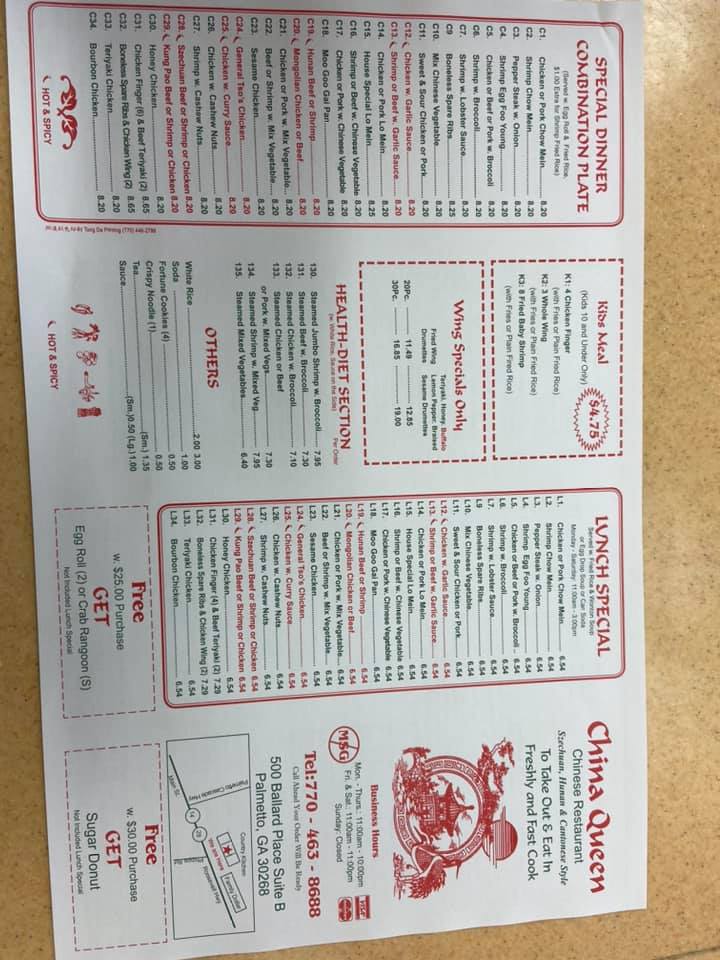 SPECIAL DINNER
COMBINATION PLATE
(Served w. Egg Roll & Fried Rice,
$1.00 Extra for Shrimp Fried Rice)
C1. Chicken or Pork Chow Mein 8.20
C2. Shrimp Chow Mein 8.20
C3. Pepper Steak w. Onion 8.20
C4. Shrimp Egg Foo Young 8.20
C5. Chicken or Beef or Pork w. Broccoli 8.20
C6. Shrimp w. Broccoli 8.20
C7. Shrimp w. Lobster Sauce 8.20
C9 Boneless Spare Ribs 8.25
C10. Mix Chinese Vegetable 8.20
C11. Sweet & Sour Chicken or Pork 8.20
C12. Chicken w. Garlic Sauce 8.20
C13. Shrimp or Beef w. Garlic Sauce 8.20
C14. Chicken or Pork Lo Mein 8.20
C15. House Special Lo Mein 8.25
C16. Shrimp or Beef w. Chinese Vegetable 8.20
C17. Chicken or Pork w. Chinese Vegetable 8.20
C18. Moo Goo Gai Pan 8.20
C19. Hunan Beef or Shrimp 8.20
C20. Mongolian Chicken or Beef 8.20
C21. Chicken or Pork w. Mix Vegetable 8.20
C22. Beef or Shrimp w. Mix Vegetable 8.20
C23. Sesame Chicken 8.20
C24. General Tso's Chicken 8.20
C25. Chicken w. Curry Sauce 8.20
C26. Chicken w. Cashew Nuts 8.20
C27. Shrimp w. Cashew Nuts 8.20
C28. Szechuan Beef or Shrimp or Chicken 8.20
C29. Kung Pao Beef or Shrimp or Chicken 8.20
C30. Honey Chicken 8.20
C31. Chicken Finger (6) & Beef Teriyaki (2) 8.65
C32. Boneless Spare Ribs & Chicken Wing (2) 8.65
C33. Teriyaki Chicken 8.20
C34. Bourbon Chicken 8.20
HOT & SPICY
Tang Da Printing (770) 446-2788
Kids Meal
(Kids 10 and Under Only)
$4.75
K1: 4 Chicken Finger
(with Fries or Plain Fried Rice)
K2: 3 Whole Wing
(with Fries or Plain Fried Rice)
K3: 8 Fried Baby Shrimp
(with Fries or Plain Fired Rice)
Wing Specials Only
Fried Wing Drumettes
Teriyaki, Honey, Buffalo Lemon Pepper, Braised Sesame Drumettes
20Pc. 11.49 12.85
30Pc. 16.85 19.00
HEALTH-DIET SECTION
(w. White Rice, Sauce on the Side) Per Order
130. Steamed Jumbo Shrimp w. Broccoli 7.95
131. Steamed Beef w. Broccoli 7.30
132. Steamed Chicken w. Broccoli 7.10
133. Steamed Chicken or Beef
or Pork w. Mixed Vegs. 7.30
134. Steamed Shrimp w. Mixed Veg 7.95
135. Steamed Mixed Vegetables 6.40
OTHERS
White Rice 2.00 3.00
Soda 1.00
Fortune Cookies (4) 0.50
Crispy Noodle (1) 0.50
Tea (Sm.) 1.35
Sauce (Sm.) 0.50 (Lg.) 1.00
HOT & SPICY
LUNCH SPECIAL
Served w. Fried Rice & Wonton Soup
or Egg Drop Soup or Can Soda
Monday - Saturday: 11:00am - 3:00pm
L1. Chicken or Pork Chow Mein 6.54
L2. Shrimp Chow Mein 6.54
L3. Pepper Steak w. Onion 6.54
L4. Shrimp Egg Foo Young 6.54
L5. Chicken or Beef or Pork w. Broccoli 6.54
L6. Shrimp w. Broccoli 6.54
L7. Shrimp w. Lobster Sauce 6.54
L9 Boneless Spare Ribs 6.54
L10. Mix Chinese Vegetable 6.54
L11. Sweet & Sour Chicken or Pork 6.54
L12. Chicken w. Garlic Sauce 6.54
L13. Shrimp or Beef w. Garlic Sauce 6.54
L14. Chicken or Pork Lo Mein 6.54
L15. House Special Lo Mein 6.54
L16. Shrimp or Beef w. Chinese Vegetable 6.54
L17. Chicken or Pork w. Chinese Vegetable 6.54
L18. Moo Goo Gai Pan 6.54
L19. Hunan Beef or Shrimp 6.54
L20. Mongolian Chicken or Beef 6.54
L21. Chicken or Pork w. Mix Vegetable 6.54
L22. Beef or Shrimp w. Mix Vegetable 6.54
L23. Sesame Chicken 6.54
L24. General Tso's Chicken 6.54
L25. Chicken w. Curry Sauce 6.54
L26. Chicken w. Cashew Nuts 6.54
L27. Shrimp w. Cashew Nuts 6.54
L28. Szechuan Beef or Shrimp or Chicken 6.54
L29. Kung Pao Beef or Shrimp or Chicken 6.54
L30. Honey Chicken 6.54
L31. Chicken Finger (4) & Beef Teriyaki (2) 7.29
L32. Boneless Spare Ribs & Chicken Wing (2) 7.29
L33. Teriyaki Chicken 6.54
L34. Bourbon Chicken 6.54
Free
w. $25.00 Purchase
GET
Egg Roll (2) or Crab Rangoon (S)
Not Included Lunch Special
China Queen
Chinese Restaurant
Szechuan, Hunan & Cantonese Style
To Take Out & Eat In
Freshly and Fast Cook
Business Hours
Mon. - Thurs.: 11:00am - 10:00pm
Fri. & Sat.: 11:00am - 11:00pm
Sunday: Closed
MSG
VISA
Tel:770 - 463 - 8688
Call Ahead Your Order Will Be Ready
500 Ballard Place Suite B
Palmetto, GA 30268
Country Kitchen
Palmetto Cascade Hwy
We are Here
Family Dollar
Roosevelt Hwy
Main St.
14
29
Free
w. $30.00 Purchase
GET
Sugar Donut
Not Included Lunch Special